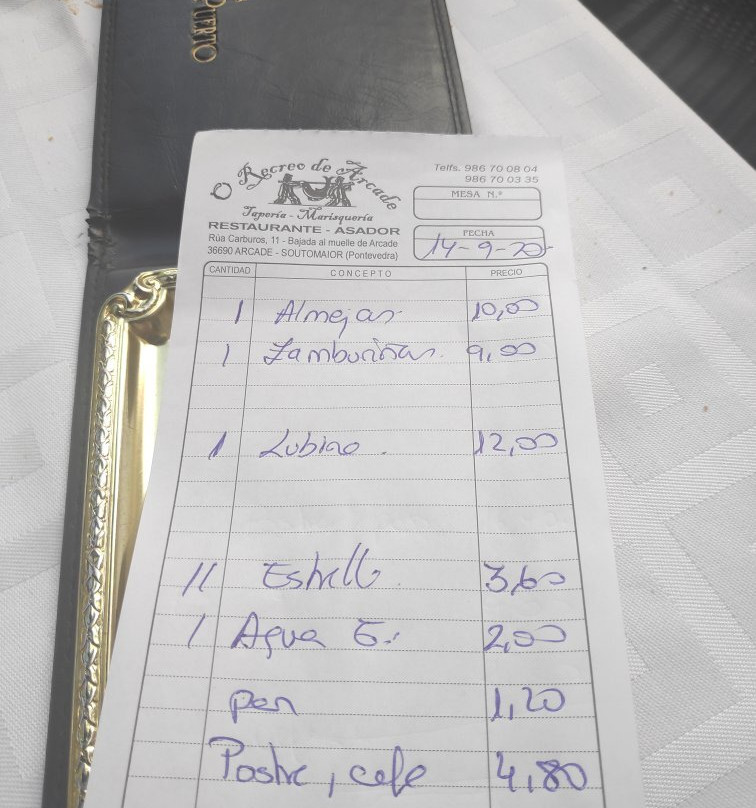 PUERTO
O Recreo de Arcade
Tapería - Marisquería
RESTAURANTE - ASADOR
Rúa Carburos, 11 - Bajada al muelle de Arcade
36690 ARCADE - SOUTOMAIOR (Pontevedra)
Telfs. 986 70 08 04
986 70 03 35
MESA N.º
FECHA
14-9-20
CANTIDAD CONCEPTO PRECIO
1 Almejas 10,00
1 Zamburiñas. 9,00
1 Lubina. 12,00
11 Estrella 3,60
1 Agua G. 2,00
pan 1,20
Postre, cafe 4,80